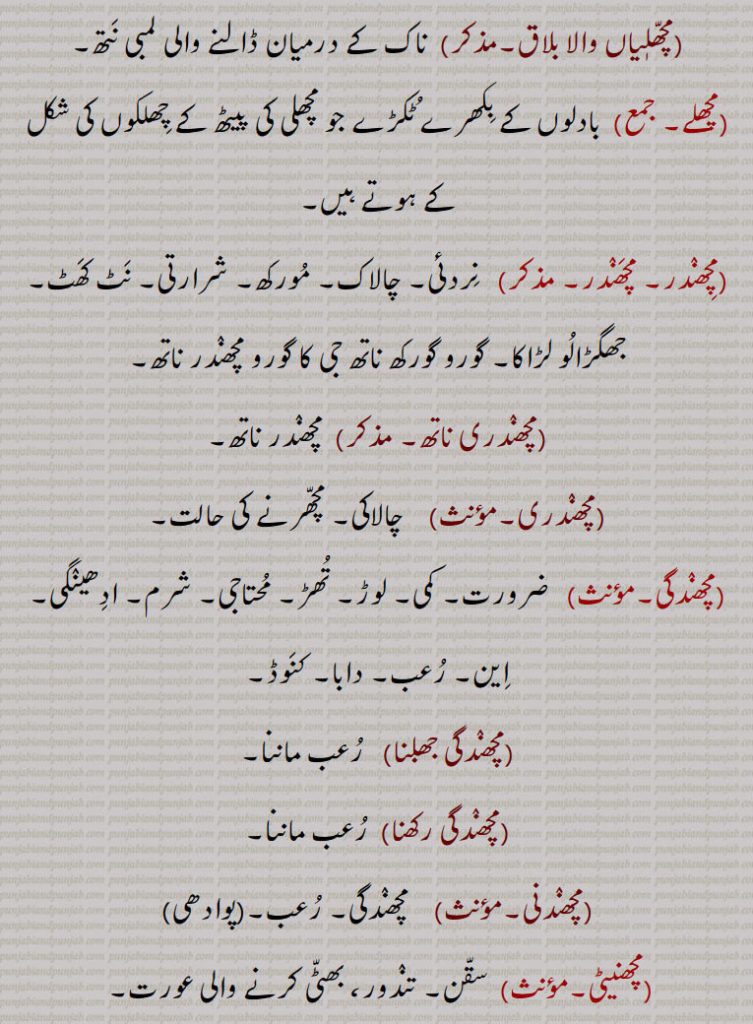 (مچھّلیاں والا بلاق۔مذکر) ناک کے درمیان ڈالنے والی لمبی نَتھ۔
(مچھلے۔ جمع) بادلوں کے بِکھرے ٹُکڑے جو مچھلی کی پیٹھ کے چِھلکوں کی شکل
کے ہوتے ہیں۔
(مِچھندر۔ مچَھندر۔ مذکر) نِردئی۔ چالاک۔ مُورکھ۔ شرارتی۔ نَٹ کَھٹ۔
جھگڑالُو لڑاکا۔ گورو گورکھ ناتھ جی کا گورو مچھندر ناتھ۔
(مچھندری ناتھ۔ مذکر) مچھندر ناتھ۔
(مچھندری۔مؤنث) چالاکی۔ مچھّرنے کی حالت۔
(مچھندگی۔مؤنث) ضرورت۔ کمی۔ لوڑ۔ تُھڑ۔ مُحتاجی۔ شرم۔ ادِھینگی۔
اِین۔ رُعب۔ دابا۔ کنَوڈ۔
(مچھندگی جھلنا) رُعب ماننا۔
(مچھندگی رکھنا) رُعب ماننا۔
(مچھندنی۔مؤنث) مچھندگی۔ رُعب۔(پوادھی)
(مچھنیٹی۔مؤنث) سقّن۔ تندور، بھٹّی کرنے والی عورت۔